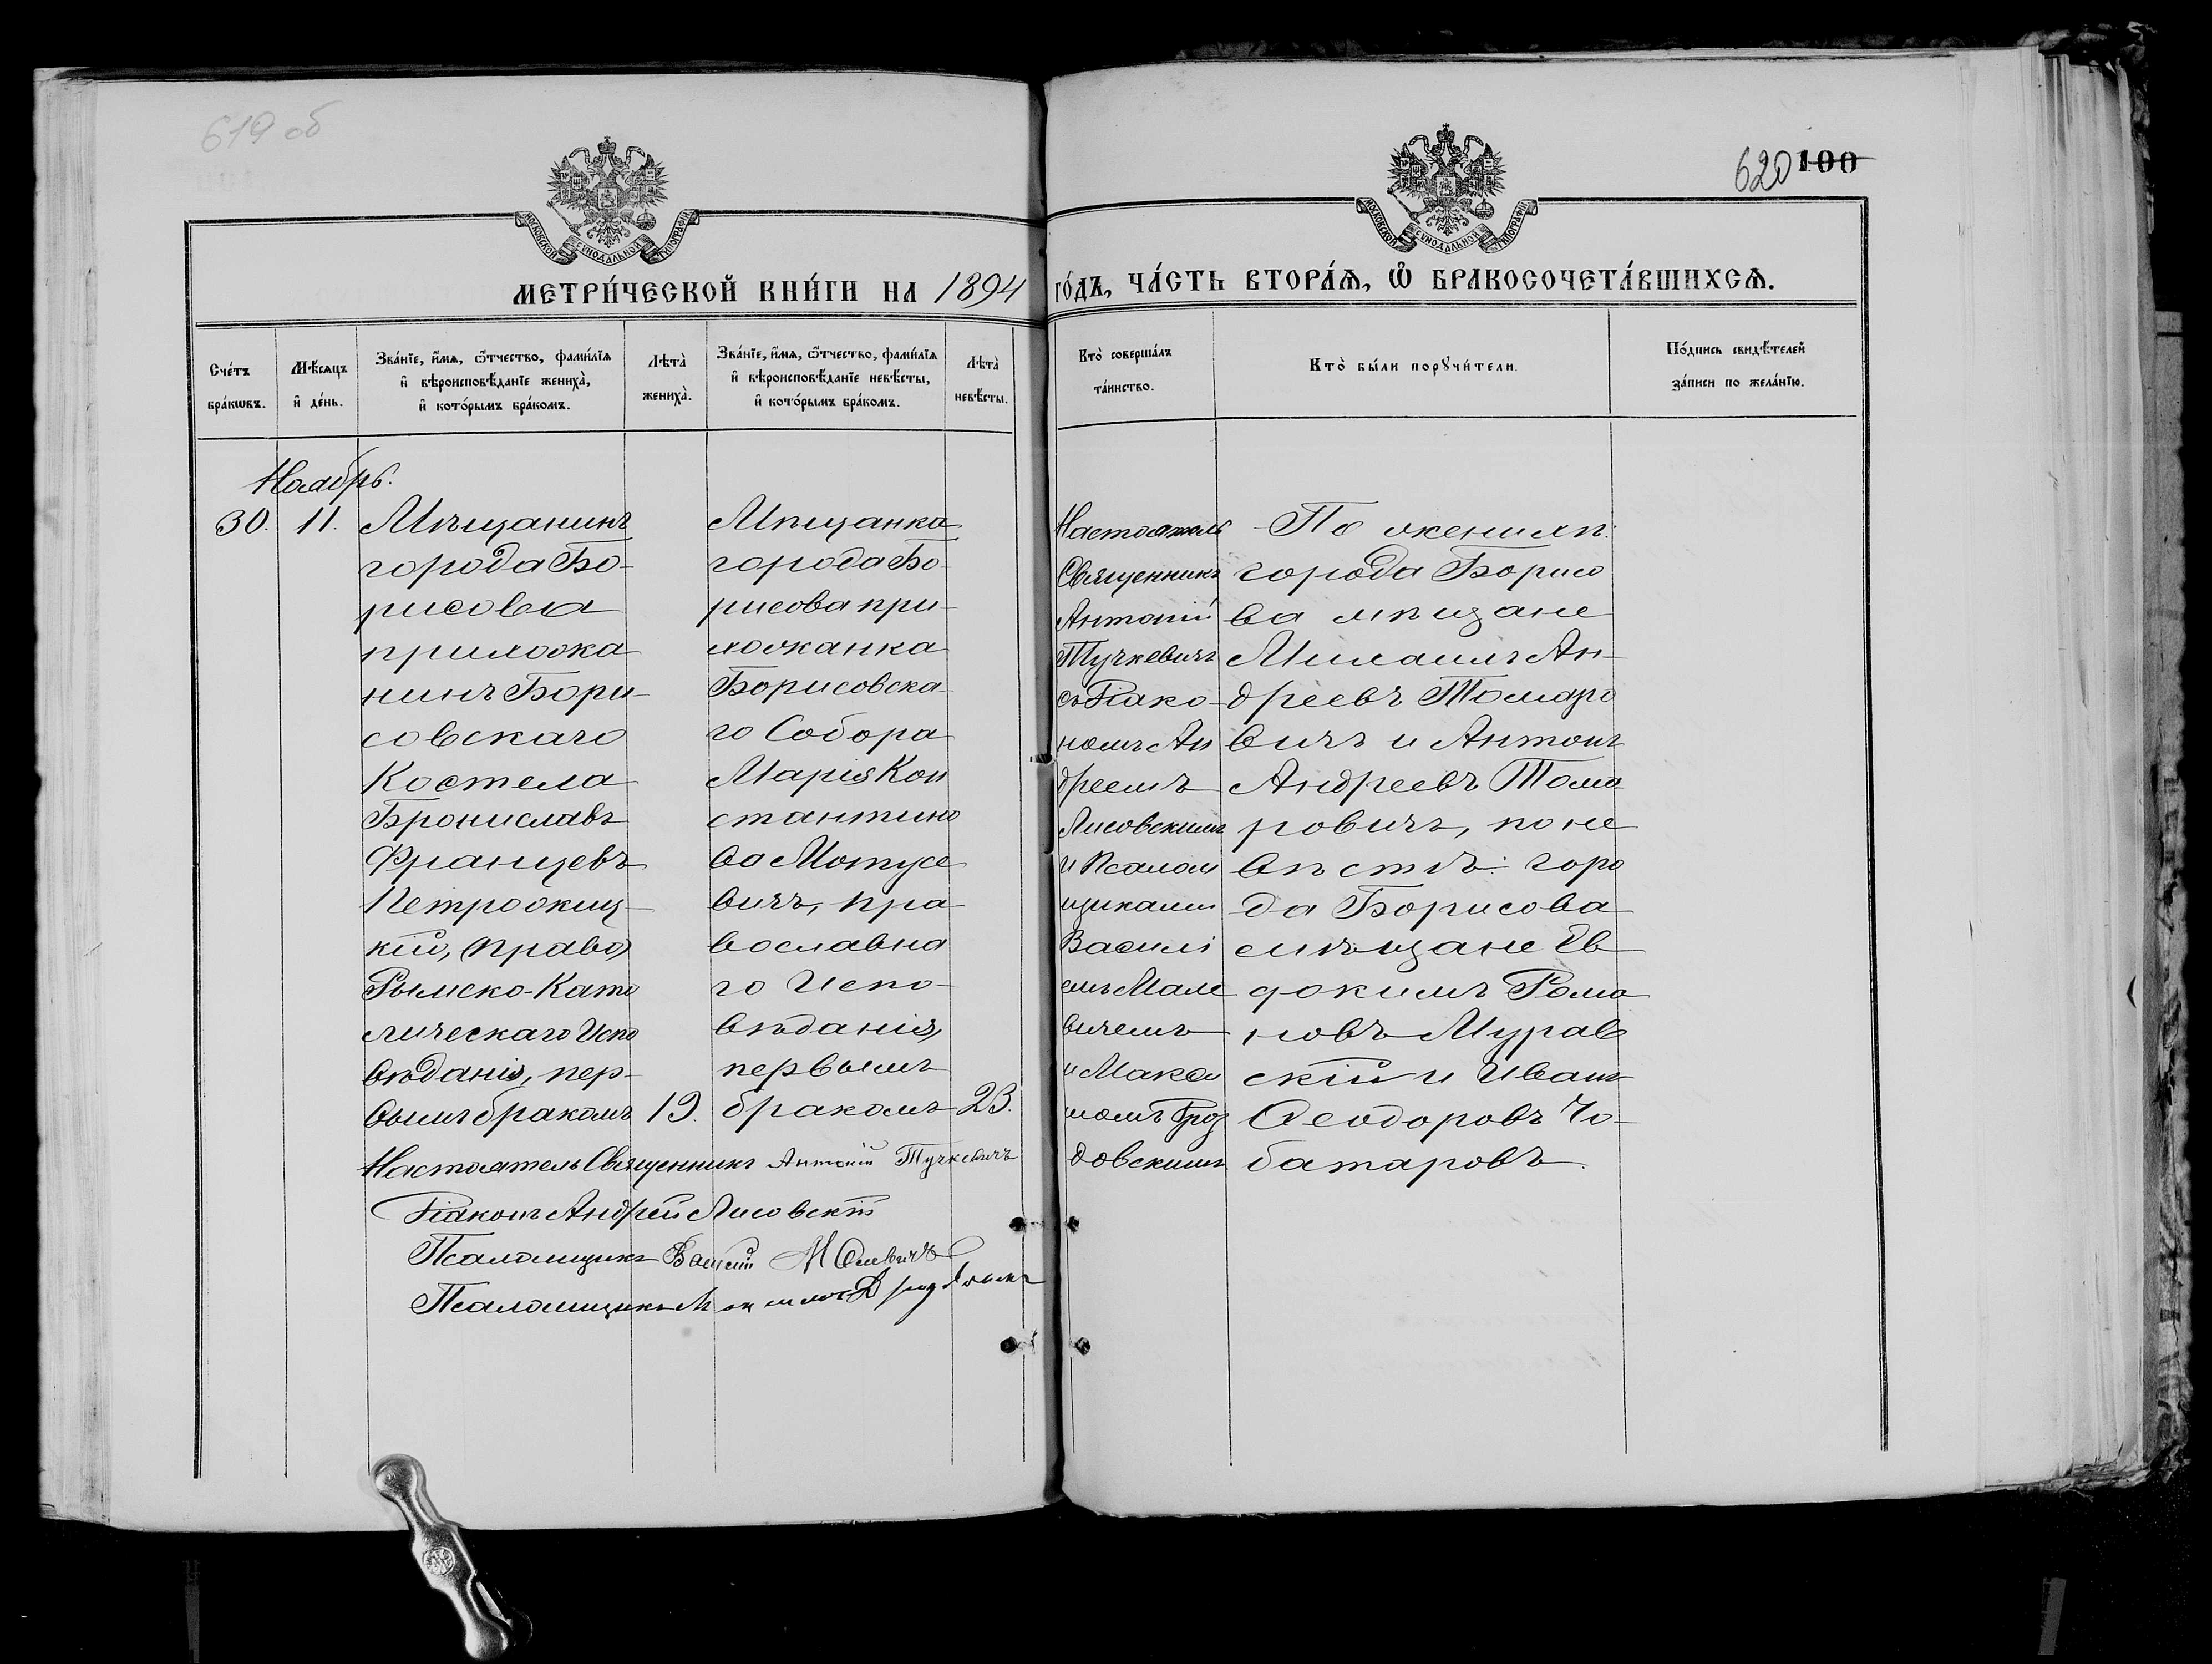 619 об
620 100
МОСКОВСКОЙ СУНОДАЛЬНОЙ ТИПОГРАФІИ
МОСКОВСКОЙ СУНОДАЛЬНОЙ ТИПОГРАФІИ
МЕТРИ́ЧЕСКОЙ КНИ́ГИ НА 1894 ГО́ДЪ, ЧА́СТЬ ВТОРА́Ѧ, Ѡ БРАКОСОЧЕТА́ВШИХСѦ.
Сче́тъ
бра́кѡвъ.
Мѣ́сѧцъ
и де́нь.
Зва́нїе, и҆́мѧ, ѻ҆́тчество, фами́лїѧ
и҆ вѣроисповѣ́данїе жениха̀,
и҆ кото́рымъ бра́комъ.
Лѣта̀
жениха̀.
Зва́нїе, и҆́мѧ, ѻ҆́тчество, фами́лїѧ
и҆ вѣроисповѣ́данїе невѣ́сты,
и҆ кото́рымъ бра́комъ.
Лѣта̀
невѣ́сты.
Кто̀ соверша́лъ
та́инство.
Кто̀ бы́ли порꙋчи́тели.
По́дпись свидѣ́телей
за́писи по жела́нїю.
Ноябрь.
30. 11.
Мѣщанинъ
города Бо-
рисова
прихожа
нинъ Бори-
совскаго
Костела
Брониславъ
Францевъ
Петрожиц-
кій,
Римско-Като
лическаго Испо
вѣданія, пер-
вымъ бракомъ 19.
Мѣщанка
города Бо-
рисова при-
хожанка
Борисовска-
го Собора
Марія Кон
стантино
ва Мотусе
вичъ, пра
вославна
го Испо-
вѣданія,
первымъ
бракомъ 23.
Настоятель
Священникъ
Антоній
Тучкевичъ
съ Діако-
номъ Ан
дреемъ
Лисовскимъ
и Псалом
щиками
Василі
емъ Мале
вичемъ
и Макси
момъ Гроз
довскимъ
По женихѣ:
города Борисо
ва мѣщане
Михаилъ Ан-
дреевъ Томаро
вичъ и Антонъ
Андреевъ Тома
ровичъ, по не
вѣстѣ: горо
да Борисова
мѣщане Ев
докимъ Рома
новъ Мурав
скій и Иванъ
Ѳеодоровъ Чо-
батаровъ.
Настоятель Священникъ Антоній Тучкевичъ
Діаконъ Андрей Лисовскій
Псаломщикъ Василій Малевичъ
Псаломщикъ